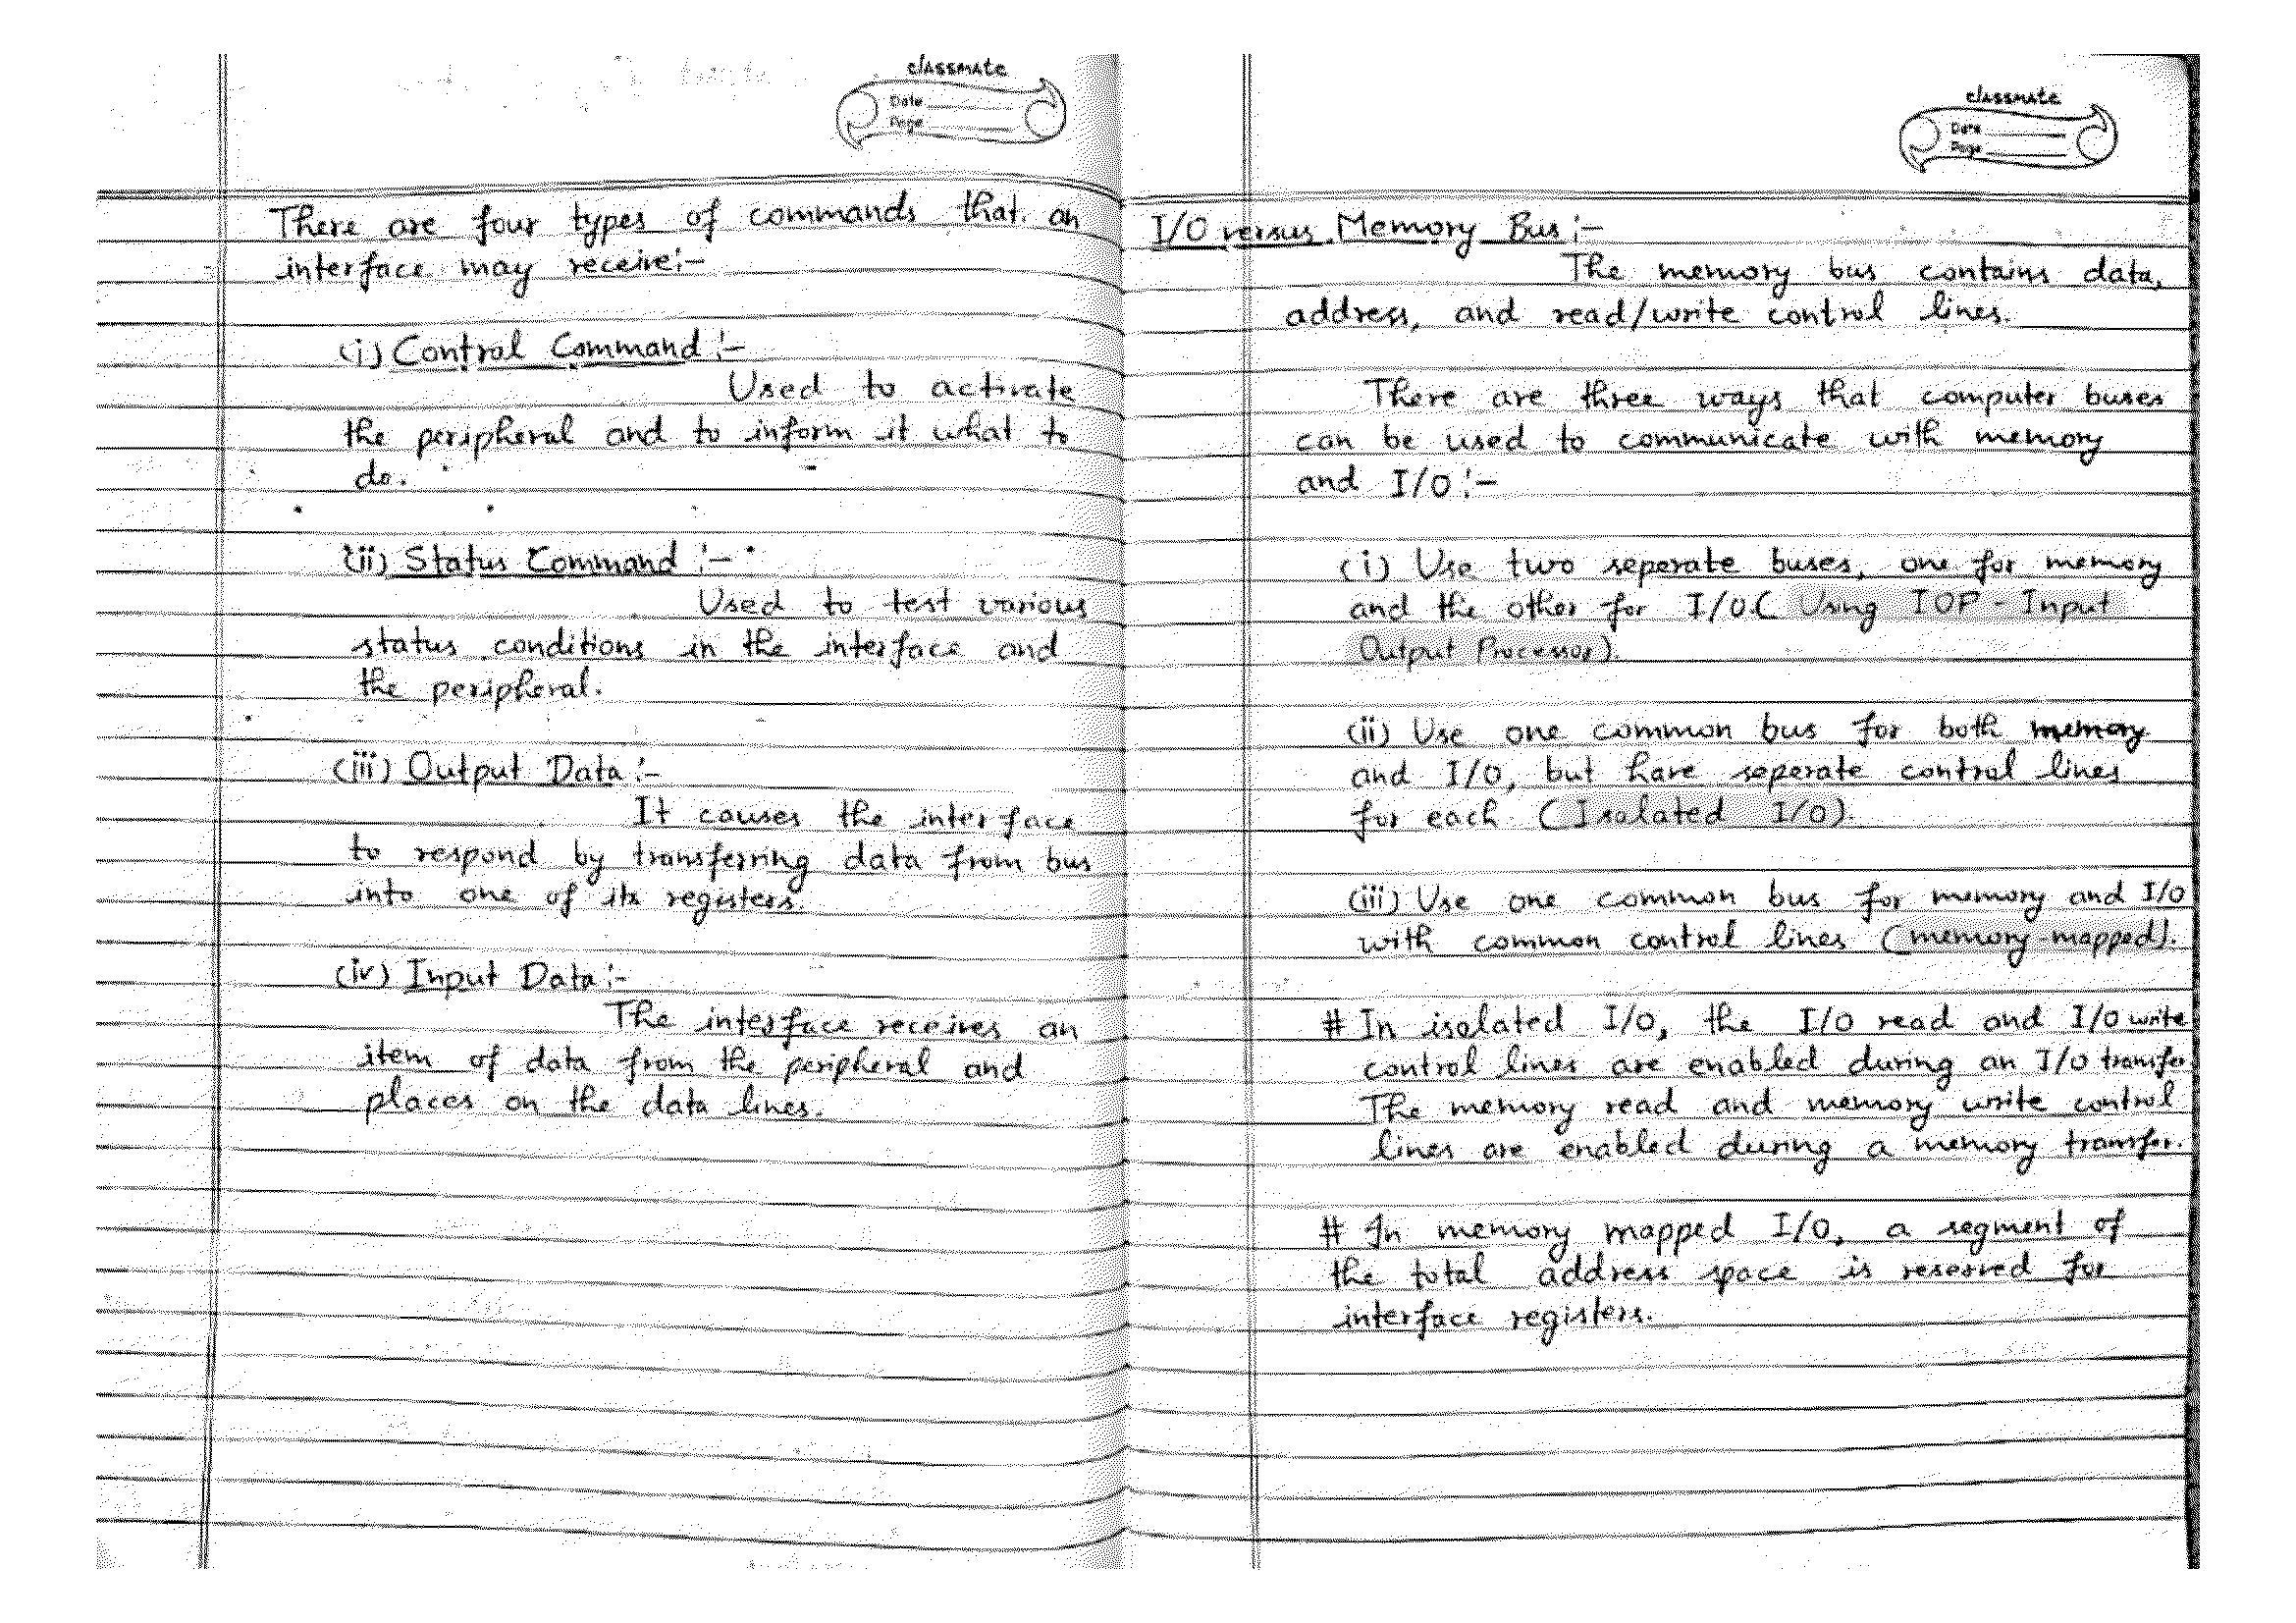 classmate
Date
Page
There are four types of commands that an
interface may receive:-
(i) Control Command :-
Used to activate
the peripheral and to inform it what to
do.
(ii) Status Command :-
Used to test various
status conditions in the interface and
the peripheral.
(iii) Output Data :-
It causes the interface
to respond by transferring data from bus
into one of its registers.
(iv) Input Data :-
The interface receives an
item of data from the peripheral and
places on the data lines.
classmate
Date
Page
I/O versus Memory Bus :-
The memory bus contains data,
address, and read/write control lines.
There are three ways that computer buses
can be used to communicate with memory
and I/O :-
(i) Use two seperate buses, one for memory
and the other for I/O.( Using IOP - Input
Output Processor).
(ii) Use one common bus for both memory
and I/O, but have seperate control lines
for each (Isolated I/O).
(iii) Use one common bus for memory and I/O
with common control lines (memory-mapped).
# In isolated I/O, the I/O read and I/O write
control lines are enabled during an I/O transfe
The memory read and memory write control
lines are enabled during a memory transfer.
# In memory mapped I/O, a segment of
the total address space is reserved for
interface registers.